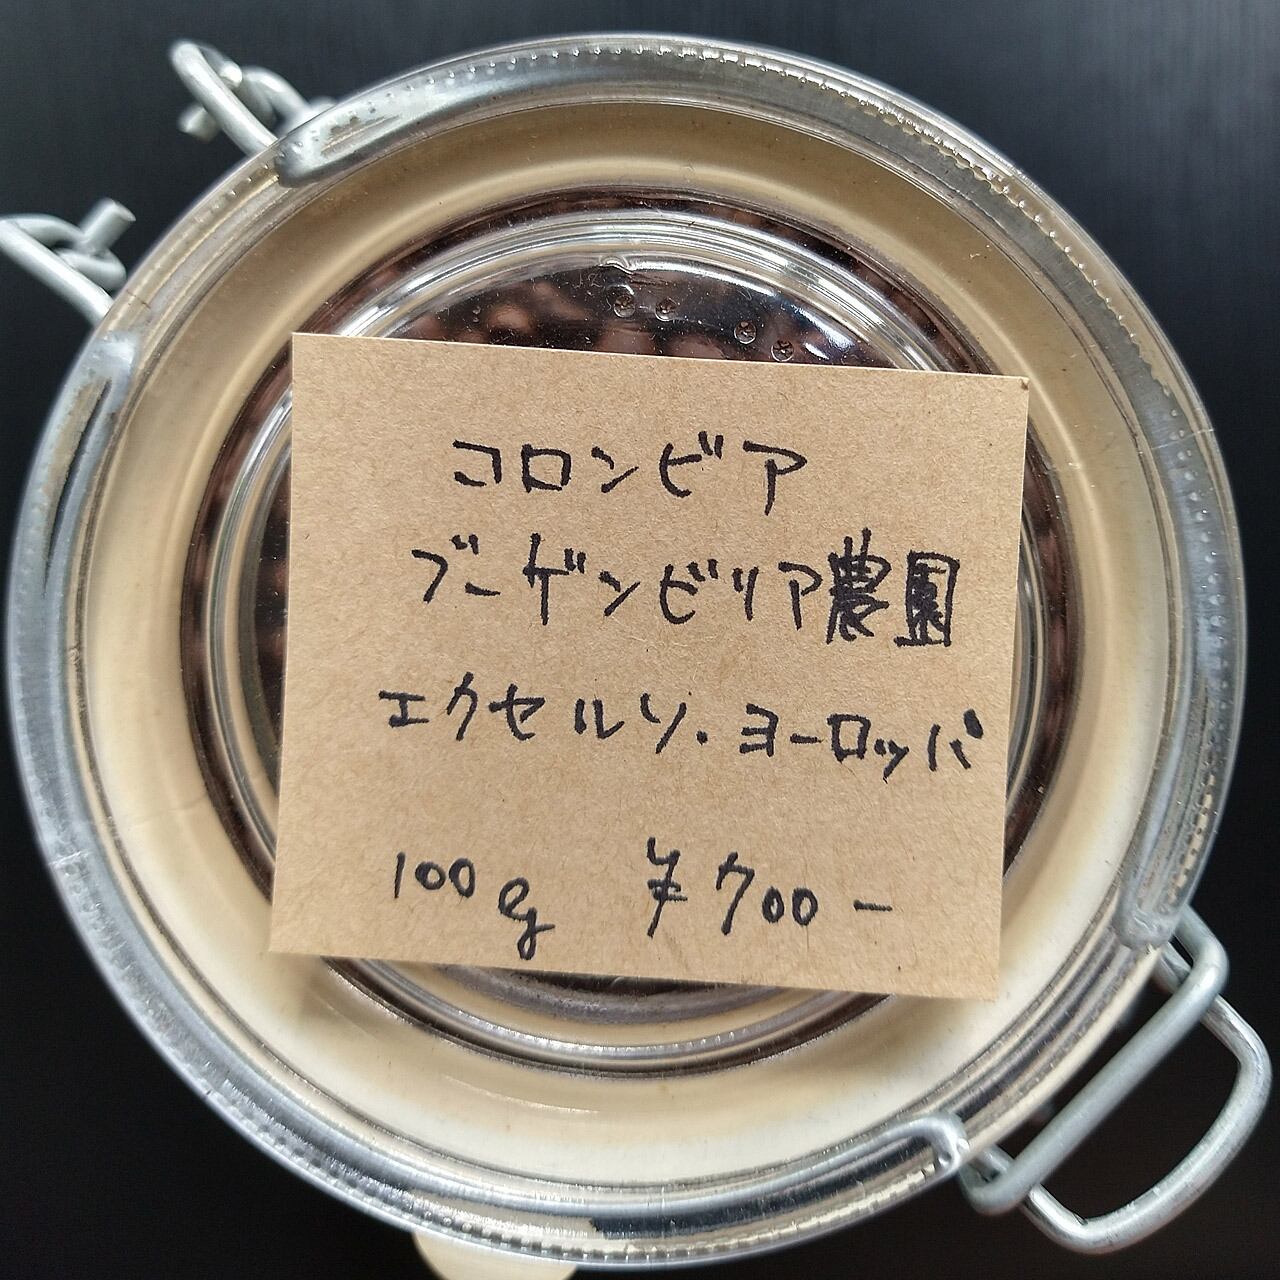 コロンビア
ブーゲンビリア農園
エクセルソ.ヨーロッパ
100g ¥700-